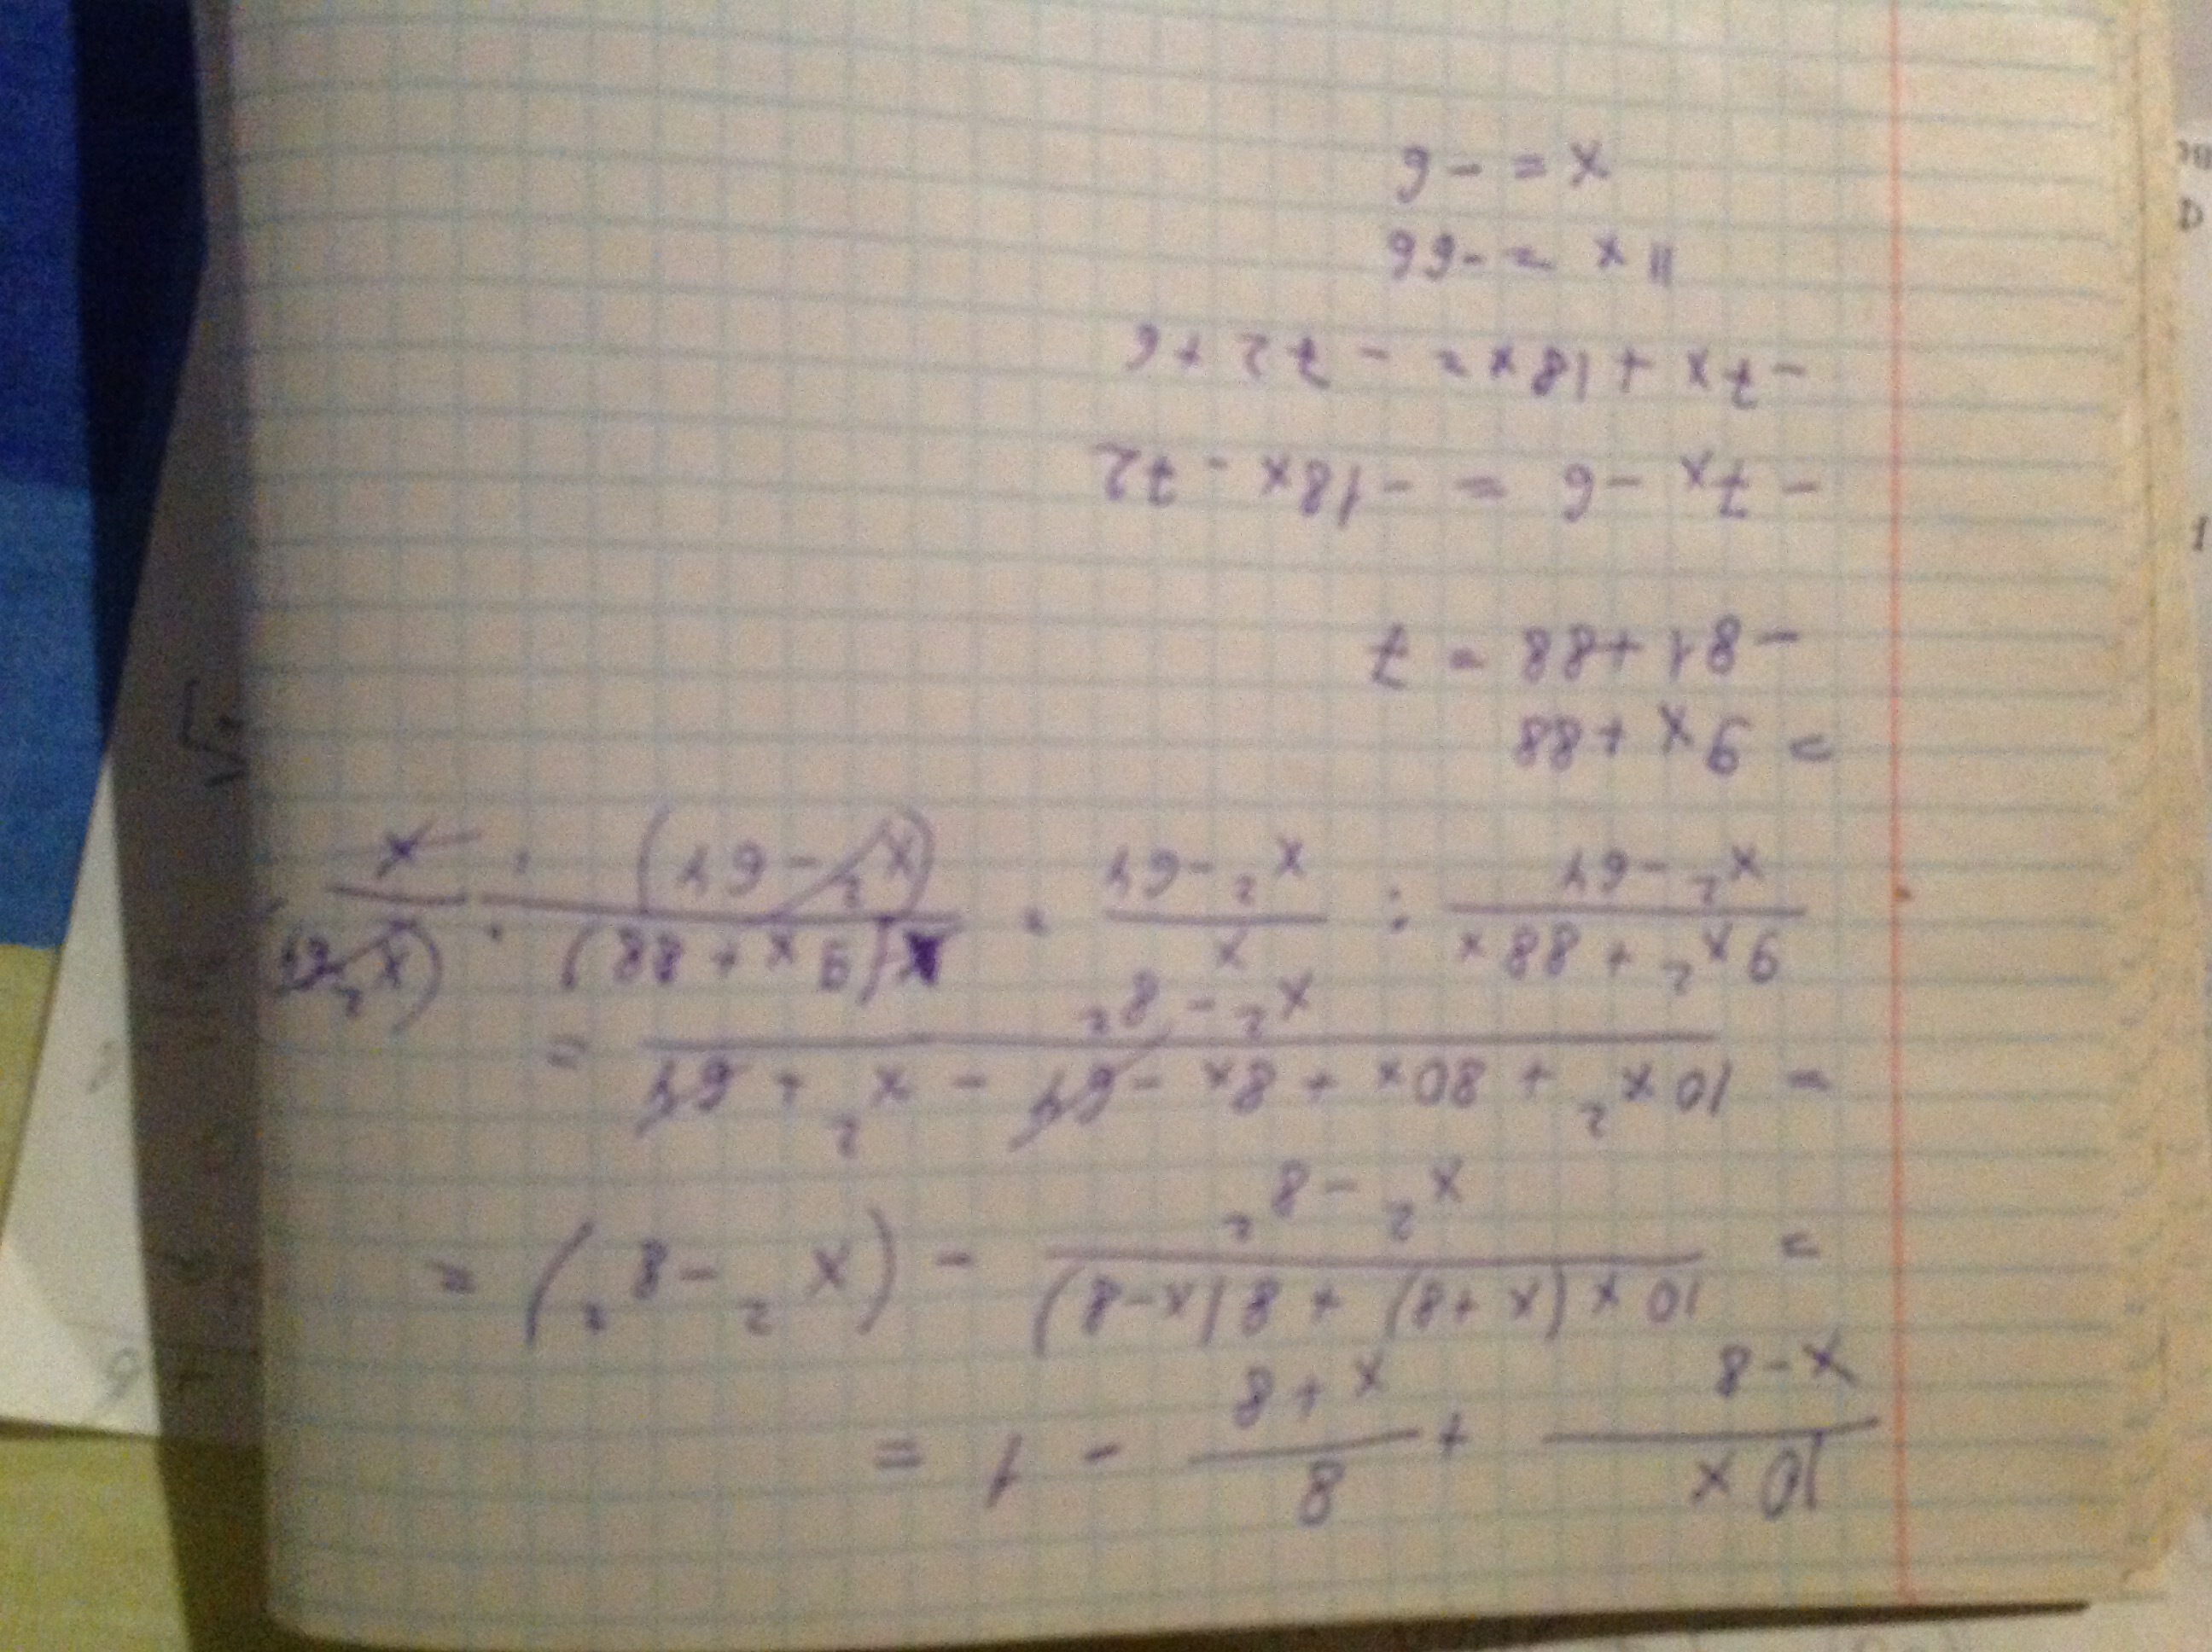 10x/(x-8) + 8/(x+8) - 1 =
= (10x(x+8) + 8(x-8))/(x² - 8²) - (x² - 8²) =
= (10x² + 80x + 8x - 64 - x² + 64)/(x² - 8²) =
(9x² + 88x)/(x² - 64) : x/(x² - 64) = x(9x + 88)/(x² - 64) · (x² - 64)/x
= 9x + 88
- 81 + 88 = 7
- 7x - 6 = - 18x - 72
- 7x + 18x = - 72 + 6
11x = -66
x = -6